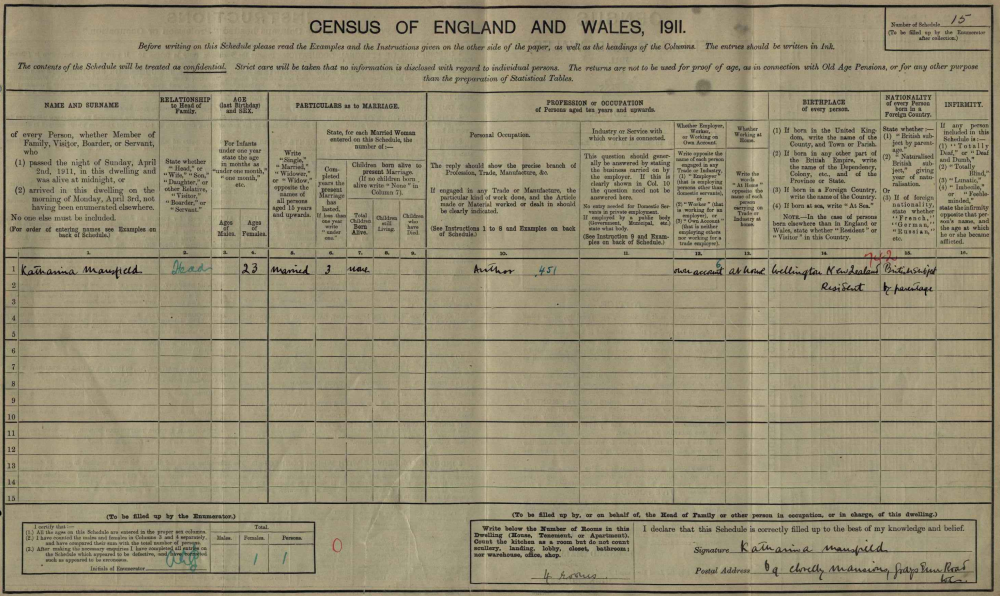 CENSUS OF ENGLAND AND WALES, 1911.
Number of Schedule 15
(To be filled up by the Enumerator
after collection.)
Before writing on this Schedule please read the Examples and the Instructions given on the other side of the paper, as well as the headings of the Columns. The entries should be written in Ink.
The contents of the Schedule will be treated as confidential. Strict care will be taken that no information is disclosed with regard to individual persons. The returns are not to be used for proof of age, as in connection with Old Age Pensions, or for any other purpose
than the preparation of Statistical Tables.
NAME AND SURNAME
of every Person, whether Member of
Family, Visitor, Boarder, or Servant,
who
(1) passed the night of Sunday, April
2nd, 1911, in this dwelling and
was alive at midnight, or
(2) arrived in this dwelling on the
morning of Monday, April 3rd, not
having been enumerated elsewhere.
No one else must be included.
(For order of entering names see Examples on
back of Schedule.)
1.
RELATIONSHIP
to Head of
Family.
State whether
"Head," or
"Wife," "Son,"
"Daughter," or
other Relative,
"Visitor,"
"Boarder," or
"Servant."
2.
AGE
(last Birthday)
and SEX.
For Infants
under one year
state the age
in months as
"under one month,"
"one month,"
etc.
Ages
of
Males.
Ages
of
Females.
3.
4.
PARTICULARS as to MARRIAGE.
Write
"Single,"
"Married,"
"Widower,"
or "Widow,"
opposite the
names of
all persons
aged 15 years
and upwards.
5.
State, for each Married Woman
entered on this Schedule, the
number of:—
Completed
years the
present
Marriage
has
lasted.
If less than
one year
write
"under
one."
6.
Children born alive to
present Marriage.
(If no children born
alive write "None" in
Column 7).
Total
Children
Born
Alive.
7.
Children
still
Living.
8.
Children
who
have
Died.
9.
PROFESSION or OCCUPATION
of Persons aged ten years and upwards.
Personal Occupation.
The reply should show the precise branch of
Profession, Trade, Manufacture, &c.
If engaged in any Trade or Manufacture, the
particular kind of work done, and the Article
made or Material worked or dealt in should
be clearly indicated.
(See Instructions 1 to 8 and Examples on back
of Schedule.)
10.
Industry or Service with
which worker is connected.
This question should generally
be answered by stating
the business carried on by
the employer. If this is
clearly shown in Col. 10
the question need not be
answered here.
No entry needed for Domestic Servants
in private employment.
If employed by a public body
(Government, Municipal, etc.)
state what body.
(See Instruction 9 and Examples
on back of Schedule.)
11.
Whether Employer,
Worker,
or Working on
Own Account.
Write opposite the
name of each person
engaged in any
Trade or Industry,
(1) "Employer"
(that is employing
persons other than
domestic servants),
or
(2) "Worker" (that
is working for an
employer), or
(3) "Own Account"
(that is neither
employing others
nor working for a
trade employer).
12.
Whether
Working at
Home.
Write the
words
"At Home"
opposite the
name of each
person
carrying on
Trade or
Industry at
home.
13.
BIRTHPLACE
of every person.
(1) If born in the United Kingdom,
write the name of the
County, and Town or Parish.
(2) If born in any other part of
the British Empire, write
the name of the Dependency,
Colony, etc., and of the
Province or State.
(3) If born in a Foreign Country,
write the name of the Country.
(4) If born at sea, write "At Sea."
NOTE.—In the case of persons
born elsewhere than in England or
Wales, state whether "Resident" or
"Visitor" in this Country.
14.
NATIONALITY
of every Person
born in a
Foreign Country.
State whether:—
(1) "British subject
by parentage,"
(2) "Naturalised
British subject,"
giving
year of naturalisation.
Or
(3) If of foreign
nationality,
state whether
"French,"
"German,"
"Russian,"
etc.
15.
INFIRMITY.
If any person
included in this
Schedule is:—
(1) "Totally
Deaf," or "Deaf
and Dumb,"
(2) "Totally
Blind,"
(3) "Lunatic,"
(4) "Imbecile,"
or "Feeble-minded,"
state the infirmity
opposite that person's
name, and
the age at which
he or she became
afflicted.
16.
742
1 Katharina Mansfield Head 23 Married 3 none Author 451 own account 6 at home Wellington New Zealand British subject
2 Resident by parentage
3
4
5
6
7
8
9
10
11
12
13
14
15
(To be filled up by the Enumerator.)
I certify that:—
(1.) All the ages on this Schedule are entered in the proper sex columns.
(2.) I have counted the males and females in Columns 3 and 4 separately,
and have compared their sum with the total number of persons.
(3.) After making the necessary enquiries I have completed all entries on
the Schedule which appeared to be defective, and have corrected
such as appeared to be erroneous.
Initials of Enumerator
Total.
Males. Females. Persons.
1 1
0
(To be filled up by, or on behalf of, the Head of Family or other person in occupation, or in charge, of this dwelling.)
Write below the Number of Rooms in this
Dwelling (House, Tenement, or Apartment).
Count the kitchen as a room but do not count
scullery, landing, lobby, closet, bathroom;
nor warehouse, office, shop.
4 rooms
I declare that this Schedule is correctly filled up to the best of my knowledge and belief.
Signature Katharina Mansfield
Postal Address 69 Clovelly Mansions, Grays Inn Road